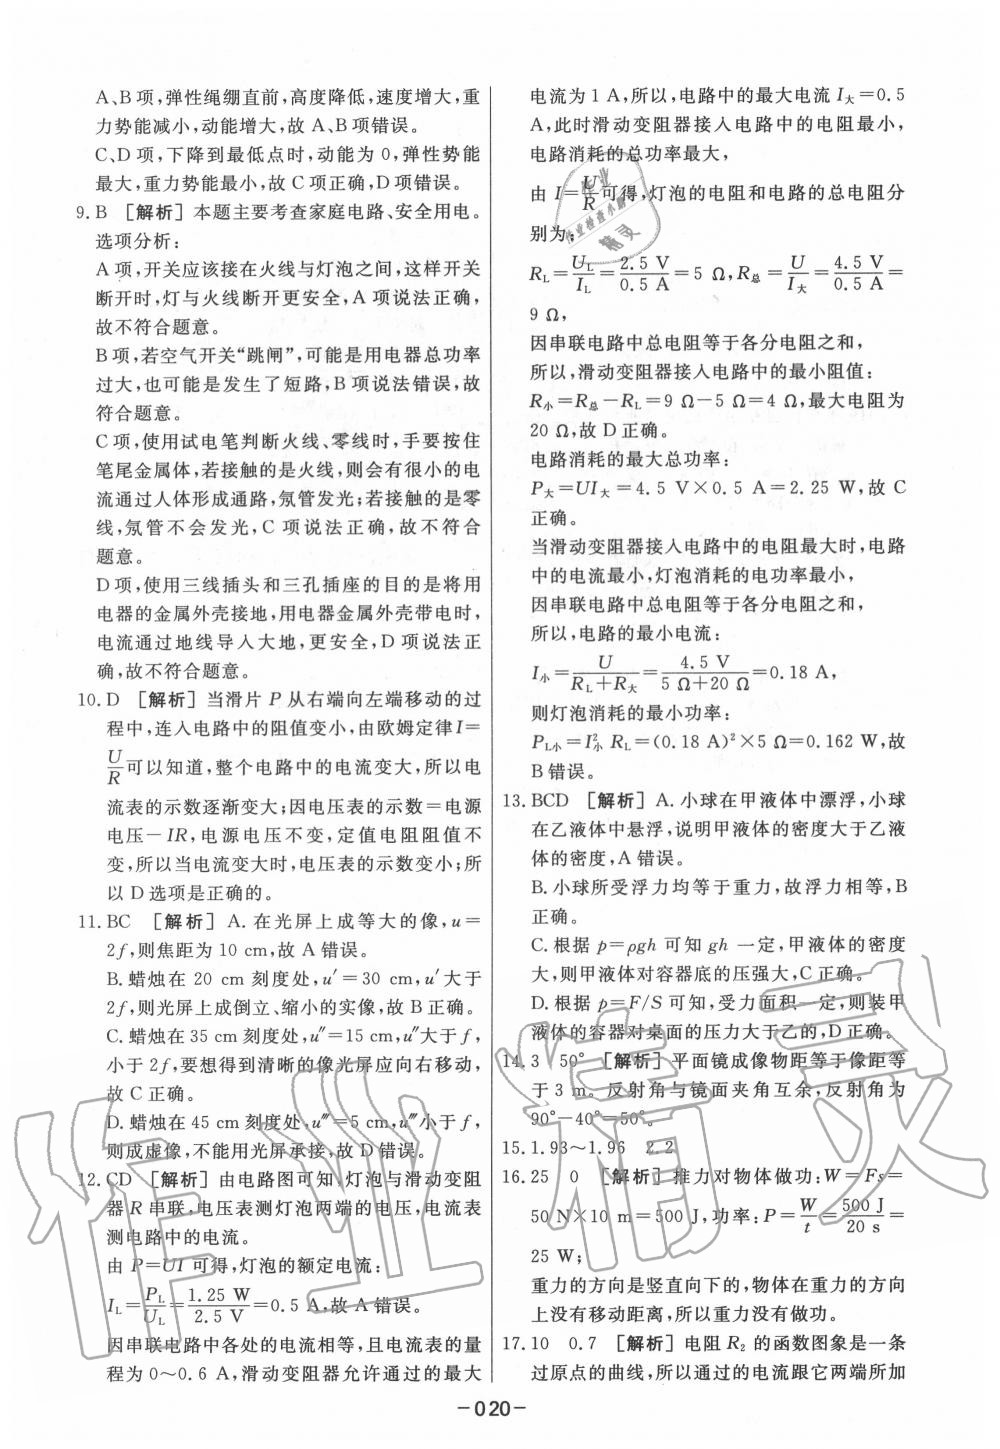 A、B项,弹性绳绷直前,高度降低,速度增大,重
力势能减小,动能增大,故A、B项错误。
C、D项,下降到最低点时,动能为0,弹性势能
最大,重力势能最小,故C项正确,D项错误。
9. B [解析] 本题主要考查家庭电路、安全用电。
选项分析:
A项,开关应该接在火线与灯泡之间,这样开关
断开时,灯与火线断开更安全,A项说法正确,
故不符合题意。
B项,若空气开关“跳闸”,可能是用电器总功率
过大,也可能是发生了短路,B项说法错误,故
符合题意。
C项,使用试电笔判断火线、零线时,手要按住
笔尾金属体,若接触的是火线,则会有很小的电
流通过人体形成通路,氖管发光;若接触的是零
线,氖管不会发光,C项说法正确,故不符合
题意。
D项,使用三线插头和三孔插座的目的是将用
电器的金属外壳接地,用电器金属外壳带电时,
电流通过地线导入大地,更安全,D项说法正
确,故不符合题意。
10. D [解析] 当滑片P从右端向左端移动的过
程中,连入电路中的阻值变小,由欧姆定律I=
U/R可以知道,整个电路中的电流变大,所以电
流表的示数逐渐变大;因电压表的示数=电源
电压-IR,电源电压不变,定值电阻阻值不
变,所以当电流变大时,电压表的示数变小;所
以D选项是正确的。
11. BC [解析] A.在光屏上成等大的像,u=
2f,则焦距为10 cm,故A错误。
B.蜡烛在20 cm刻度处,u′=30 cm,u′大于
2f,则光屏上成倒立、缩小的实像,故B正确。
C.蜡烛在35 cm刻度处,u″=15 cm,u″大于f,
小于2f,要想得到清晰的像光屏应向右移动,
故C正确。
D.蜡烛在45 cm刻度处,u‴=5 cm,u‴小于f,
则成虚像,不能用光屏承接,故D错误。
12. CD [解析] 由电路图可知,灯泡与滑动变阻
器R串联,电压表测灯泡两端的电压,电流表
测电路中的电流。
由P=UI可得,灯泡的额定电流:
I_L=P_L/U_L=1.25 W/2.5 V=0.5 A,故A错误。
因串联电路中各处的电流相等,且电流表的量
程为0~0.6 A,滑动变阻器允许通过的最大
电流为1 A,所以,电路中的最大电流I大=0.5
A,此时滑动变阻器接入电路中的电阻最小,
电路消耗的总功率最大,
由I=U/R可得,灯泡的电阻和电路的总电阻分
别为:
R_L=U_L/I_L=2.5 V/0.5 A=5 Ω,R总=U/I大=4.5 V/0.5 A=
9 Ω,
因串联电路中总电阻等于各分电阻之和,
所以,滑动变阻器接入电路中的最小阻值:
R小=R总-R_L=9 Ω-5 Ω=4 Ω,最大电阻为
20 Ω,故D正确。
电路消耗的最大总功率:
P大=UI大=4.5 V×0.5 A=2.25 W,故C
正确。
当滑动变阻器接入电路中的电阻最大时,电路
中的电流最小,灯泡消耗的电功率最小,
因串联电路中总电阻等于各分电阻之和,
所以,电路的最小电流:
I小=U/(R_L+R大)=4.5 V/(5 Ω+20 Ω)=0.18 A,
则灯泡消耗的最小功率:
P_L小=I小²R_L=(0.18 A)²×5 Ω=0.162 W,故
B错误。
13. BCD [解析] A.小球在甲液体中漂浮,小球
在乙液体中悬浮,说明甲液体的密度大于乙液
体的密度,A错误。
B.小球所受浮力均等于重力,故浮力相等,B
正确。
C.根据p=ρgh可知gh一定,甲液体的密度
大,则甲液体对容器底的压强大,C正确。
D.根据p=F/S可知,受力面积一定,则装甲
液体的容器对桌面的压力大于乙的,D正确。
14. 3 50° [解析] 平面镜成像物距等于像距等
于3 m。反射角与镜面夹角互余,反射角为
90°-40°=50°。
15. 1.93~1.96 2.2
16. 25 0 [解析] 推力对物体做功:W=Fs=
50 N×10 m=500 J,功率:P=W/t=500 J/20 s=
25 W;
重力的方向是竖直向下的,物体在重力的方向
上没有移动距离,所以重力没有做功。
17. 10 0.7 [解析] 电阻R₂的函数图象是一条
过原点的曲线,所以通过的电流跟它两端所加
-020-
作业精灵